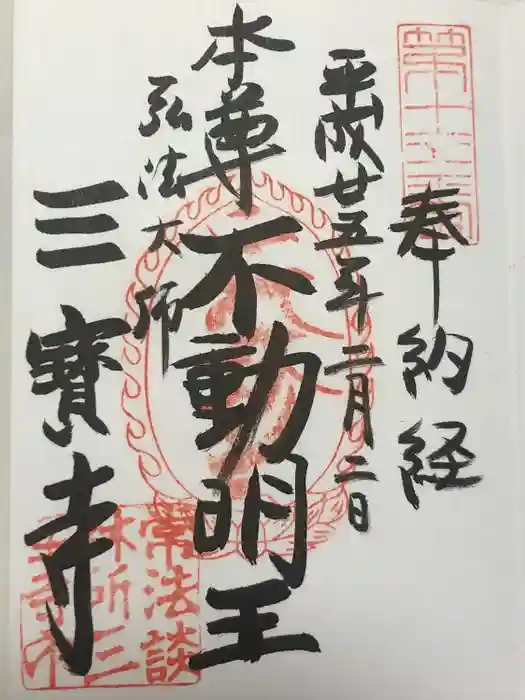 奉納経
平成廿五年二月二日
本尊不動明王
弘法大師
三寶寺
常法談
林所三